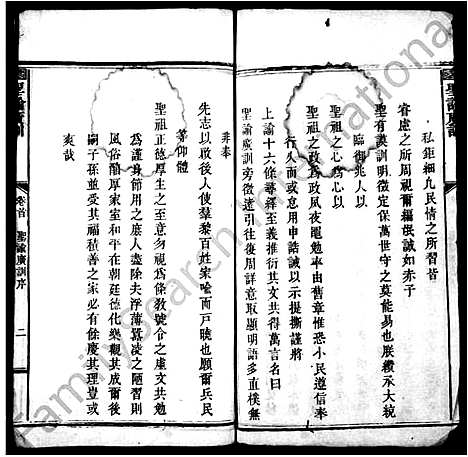 聖諭廣訓
私鉅細凡民情之所習皆
睿慮之所周視爾編氓誠如赤子
聖有謨訓明徵定保萬世守之莫能易也朕纘承大統
臨御兆人以
聖祖之心爲心以
聖祖之政爲政夙夜黽勉率由舊章惟恐小民遵信奉
行久而或怠用申誥誡以示提撕謹將
上諭十六條尋繹其義推衍其文共得萬言名曰
聖諭廣訓旁徵遠引往復周詳意取顯明語多直樸無
非奉
先志以啟後人使羣黎百姓家喻而戶曉也願爾兵民
等仰體
聖祖正德厚生之至意勿視爲條敎號令之虛文共勉
爲謹身節用之庶人盡除夫浮薄囂凌之陋習則
風俗醇厚家室和平在朝廷德化樂觀其成爾後
嗣子孫並受其福積善之家必有餘慶其理豈或
爽哉
聖諭廣訓
卷首
聖諭廣訓序
二
FamilySearch International